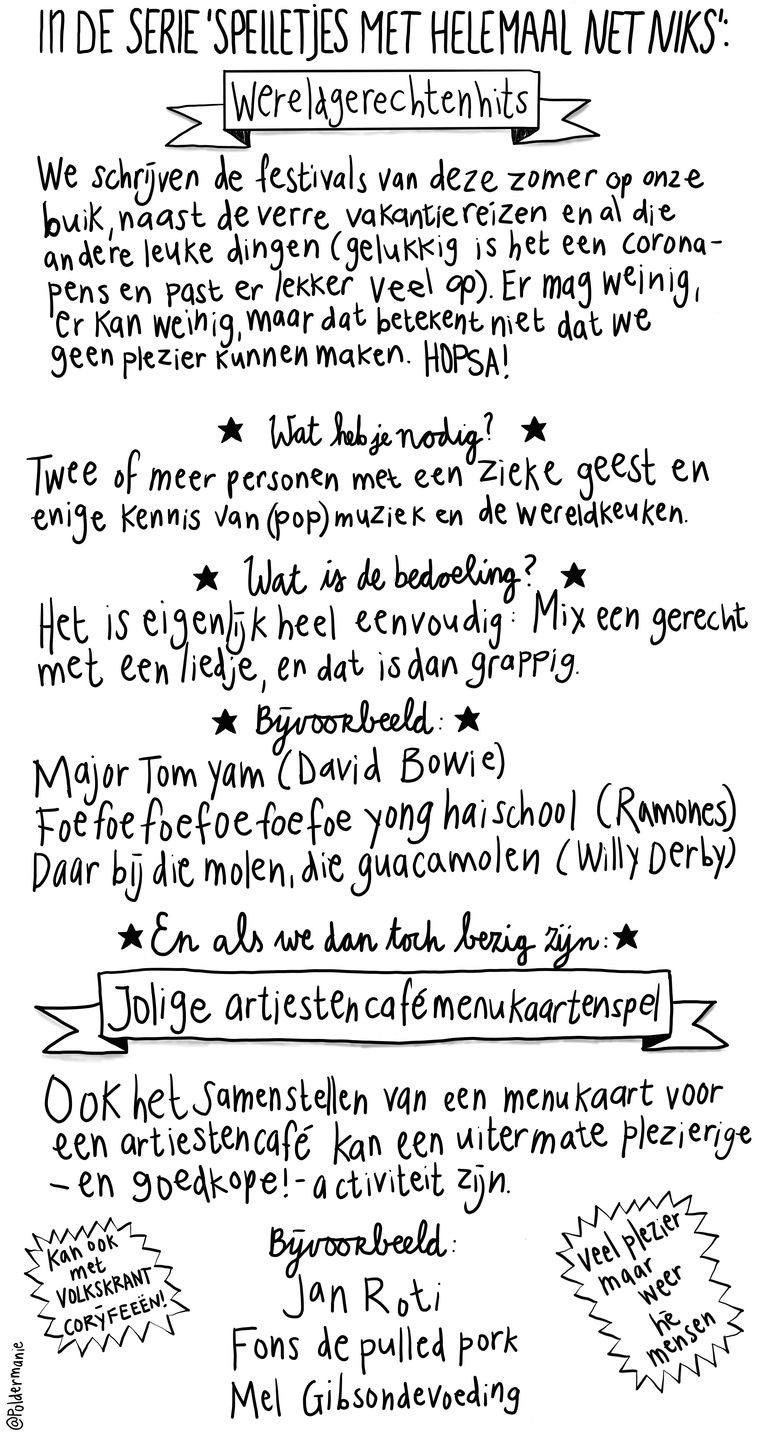 IN DE SERIE 'SPELLETJES MET HELEMAAL NET NIKS':
Wereldgerechtenhits
We schrijven de festivals van deze zomer op onze
buik, naast de verre vakantiereizen en al die
andere leuke dingen (gelukkig is het een corona-
pens en past er lekker veel op). Er mag weinig,
er kan weinig, maar dat betekent niet dat we
geen plezier kunnen maken. HOPSA!
★ Wat heb je nodig? ★
Twee of meer personen met een zieke geest en
enige kennis van (pop)muziek en de wereldkeuken.
★ Wat is de bedoeling? ★
Het is eigenlijk heel eenvoudig: Mix een gerecht
met een liedje, en dat is dan grappig.
★ Bijvoorbeeld: ★
Major Tom yam (David Bowie)
Foefoefoefoefoefoe yong hai school (Ramones)
Daar bij die molen, die guacamolen (Willy Derby)
★ En als we dan toch bezig zijn: ★
Jolige artiestencafémenukaartenspel
Ook het samenstellen van een menukaart voor
een artiestencafé kan een uitermate plezierige
– en goedkope! – activiteit zijn.
Bijvoorbeeld:
Jan Roti
Fons de pulled pork
Mel Gibsondevoeding
Kan ook
met
VOLKSKRANT
CORYFEEËN!
Veel plezier
maar
weer
hè
mensen
@Poldermanie